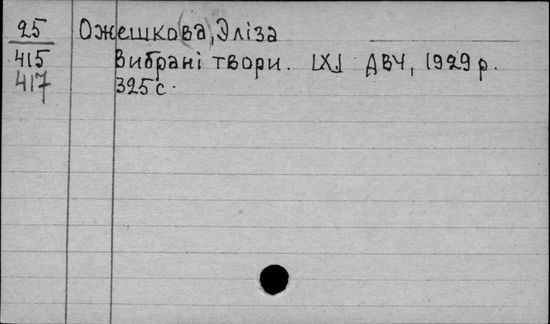 25 Ожешко(ва), Эліза
415 Вибрані твори. [X.] ДВУ, 1929 р.
417 325 с.